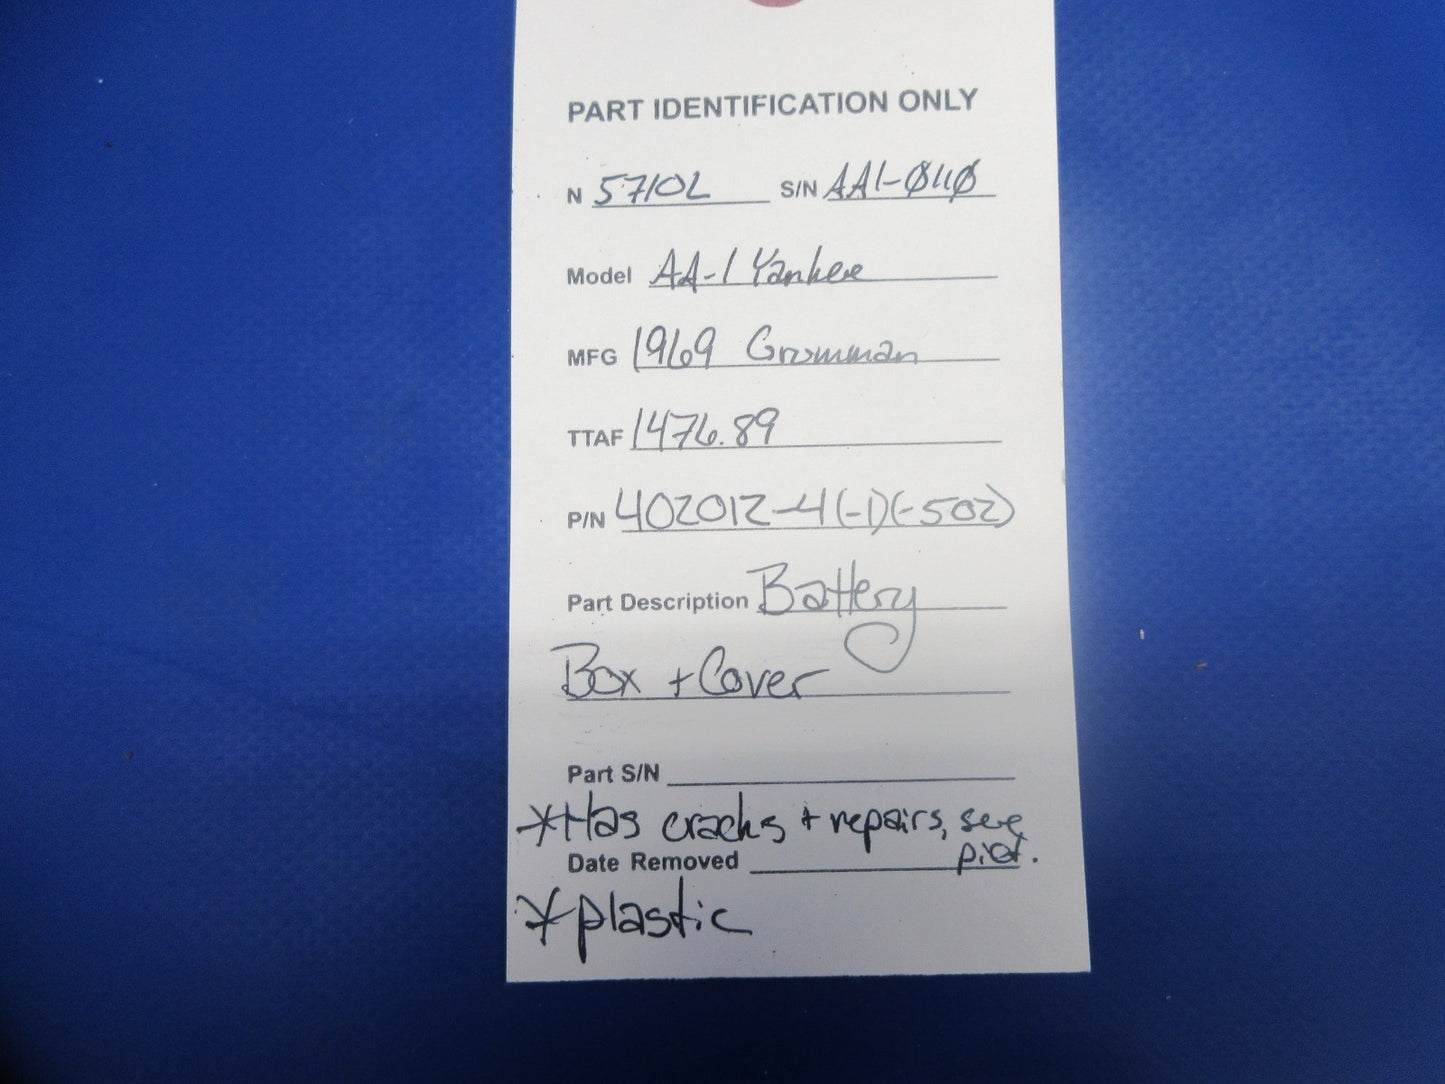 PART IDENTIFICATION ONLY
N 5710L S/N AA1-0110
Model AA-1 Yankee
MFG 1969 Grumman
TTAF 1476.89
P/N 402012-4(-1)(-502)
Part Description Battery
Box + Cover
Part S/N
*Has cracks + repairs, see
Date Removed pict.
*plastic